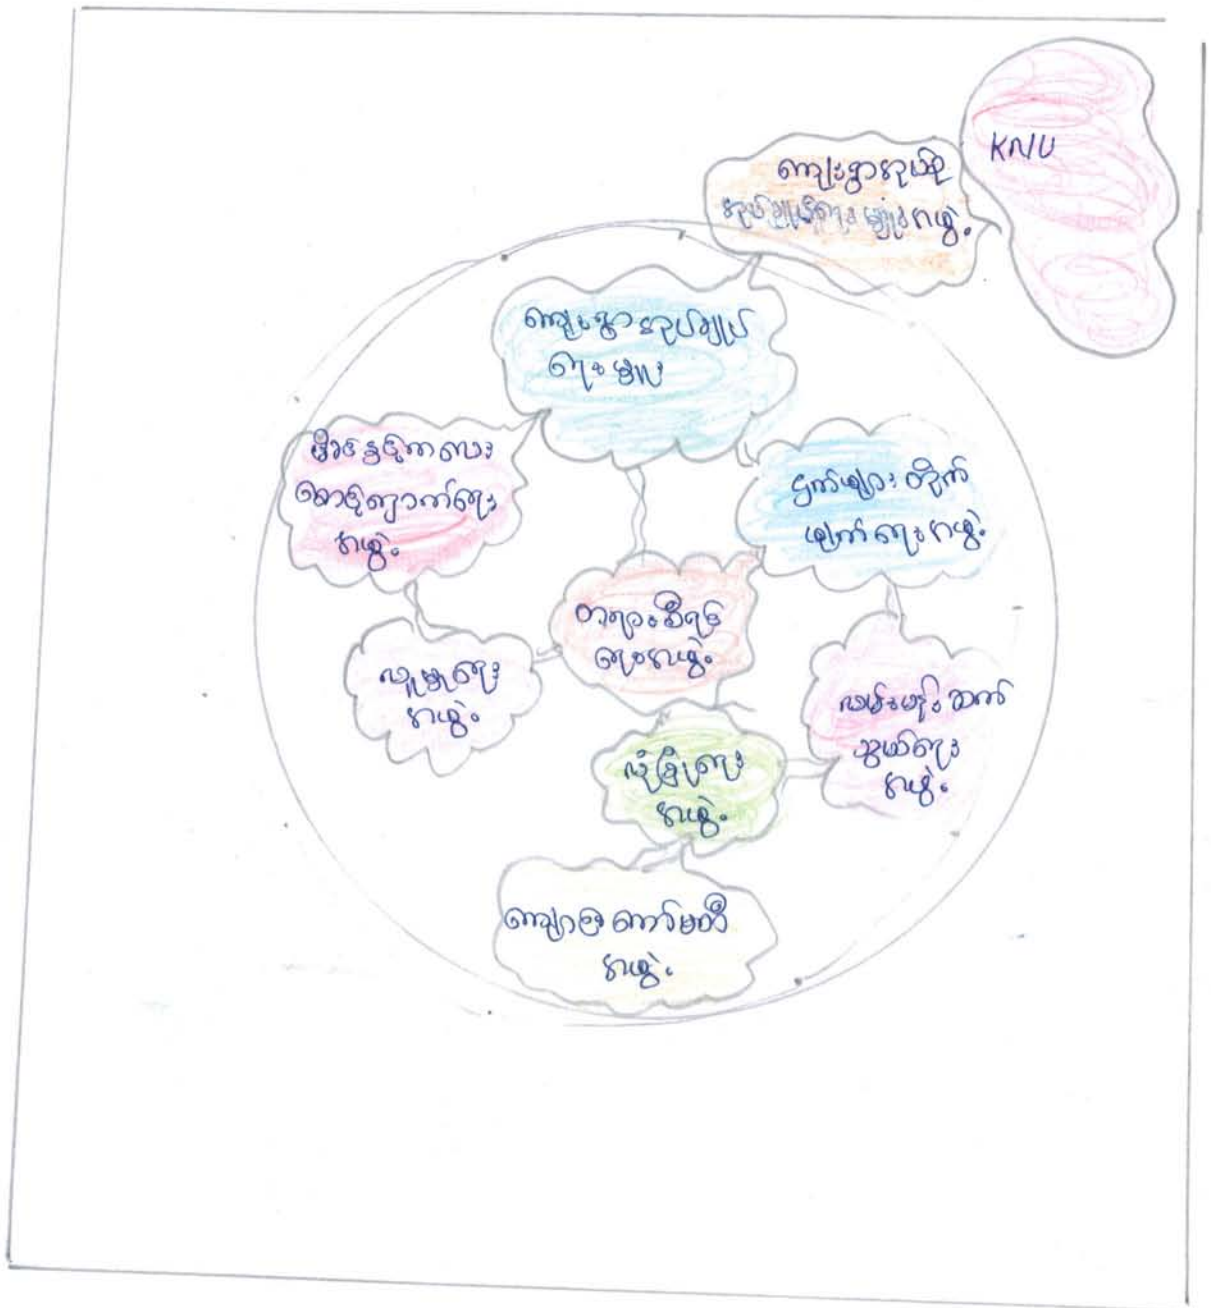 KNU
ကျေးရွာအုပ်စု
အုပ်ချုပ်ရေးမှူးအဖွဲ့
ကျေးရွာအုပ်ချုပ်
ရေးမှူး
မိခင်နှင့်ကလေး
စောင့်ရှောက်ရေး
အဖွဲ့
ငှက်ဖျားတိုက်
ဖျက်ရေးအဖွဲ့
တရားစီရင်
ရေးအဖွဲ့
လူမှုရေး
အဖွဲ့
လမ်းပန်းဆက်
သွယ်ရေး
အဖွဲ့
လုံခြုံရေး
အဖွဲ့
ကျောင်းကော်မတီ
အဖွဲ့